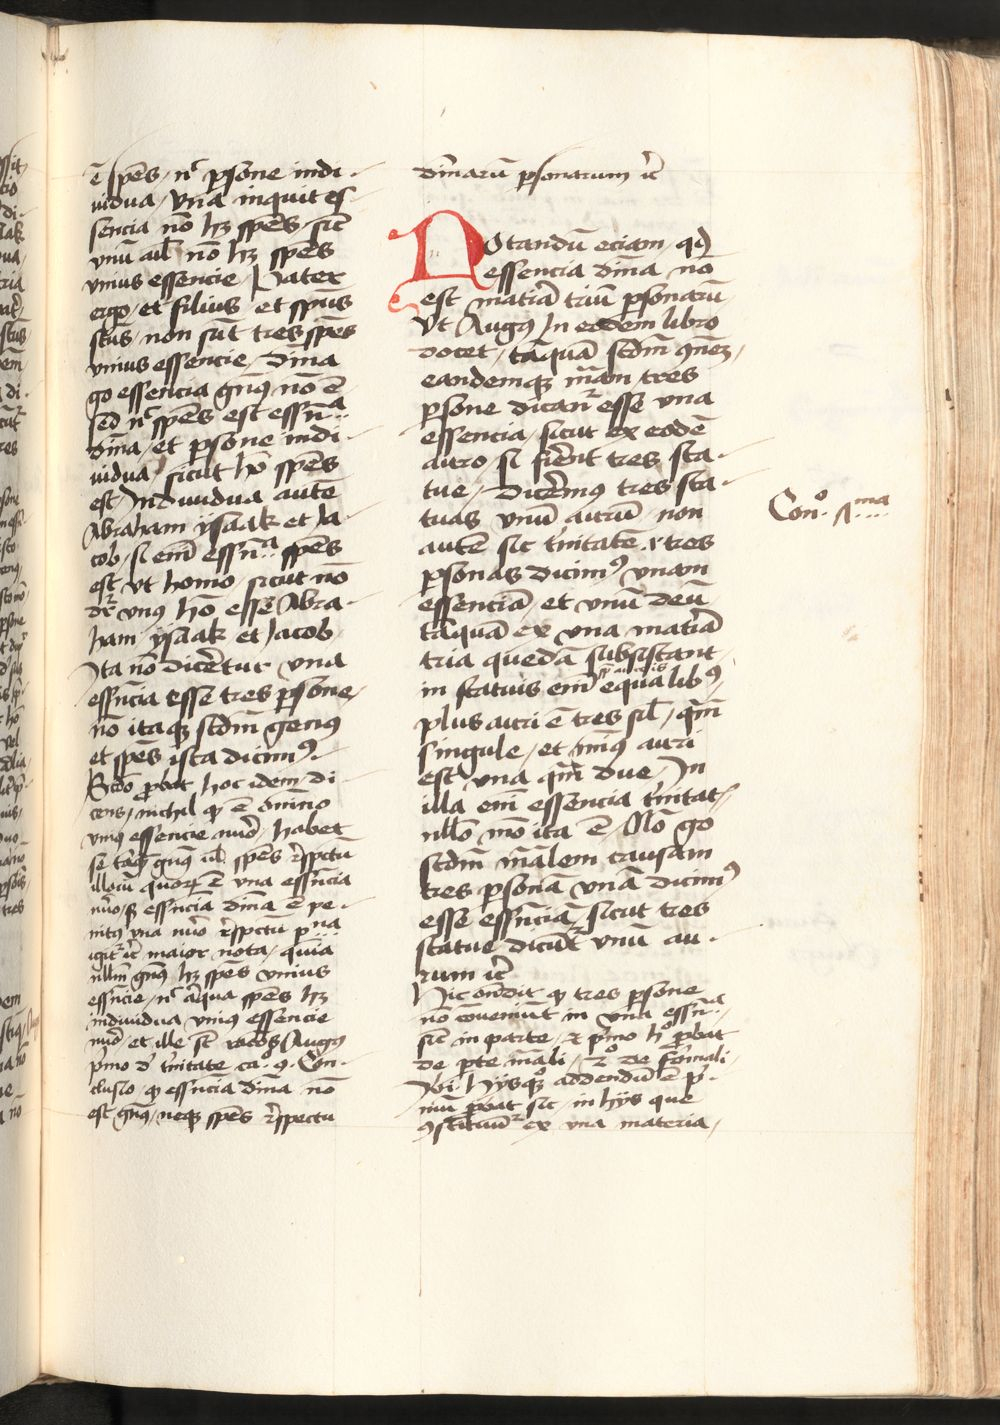 ē spēs / nͨ ꝑsone indi-
uidua / Una inquit es-
sencia nō hꝫ spēs / sic̄
vnū aūl nō hꝫ spēs
vnius essencie / Pater
ergo / et filius / et spūs
sc̄tus / non sūt tres spēs
vnius essencie / diīna
go essencia gn̄ꝰ nō ē
sed nͨ spēs est essn̄ᵃ
diīna / et ꝑsone indi-
uidua / sicut hō spēs
est / Indiuidua autē
Abraham ysaak et Ia-
cob / si em̄ essn̄ᵃ spēs
est vt homo / sicut nō
dr̄ vnꝰ hō esse Abra-
ham ysaak et Jacob
Ita nō dicetur vna
essn̄cia esse tres ꝑsone /
nō itaqꝫ scdm̄ genꝰ
et spēs ista dicimꝰ.
Scd̄o ꝓbat hoc idem di-
cens / nichil qͥ ē om̄ino
vniꝰ essencie nūo / habet
se tāqꝫ gn̄ꝰ ul̄ spēs rͤspctū
illorū quorꝫ ē vna essn̄cia
nūo / sꝫ essn̄cia diīna ē pe-
nitꝰ vna nūo rͤspctū ꝑnᵃ
igitͬ ic̄ maior nota / quīa
nllm̄ gn̄ꝰ hꝫ spēs vnius
essn̄cie / nͨ aliqua spēs hꝫ
indiuidua vniꝰ essencie
nūo / et ille st̄ rac̄os Augꝰ
pͥmo d' tͥnitate ca° 9. Con-
clusio / qͥ essn̄cia diīna nō
est gn̄ꝰ / neqꝫ spēs rͤspectu
diīnarū ꝑsonarum ic̄
Notandū eciam / qd̄
essencia diīna nō
est matīa triū ꝑsonarū
Vt Augꝰ In eodem libro
docet / tāquā scdm̄ ꝯnēꝫ /
eandemqꝫ m̄am tres
ꝑsone dicant̄ esse vna
essencia / sicut ex eodē
auro / si fierent tres sta-
tue / dicemꝰ tres sta-
tuas vnū aurū / non
autē sic tͥnitatē / tres
ꝑsonas dicimꝰ vnam
essenciā / et vnū deū
tāquā ex vna matīa
tria quedā subsistant
in statuis em̄ equalibꝰ
plus auri ē tres sil̄ / qm̄
singule / et minꝰ auri
est vna qm̄ due / In
illa em̄ essencia tͥnitat̄
nllo mō ita ē / Nō go
scdm̄ m̄alem causam
tres ꝑsonā vnā dicimꝰ
esse essn̄ciā / sicut tres
statue dicūtͬ vnū au-
rum ic̄
Hic on̄dit qͥ tres ꝑsone
nō conueniūt in vna essn̄ᵃ
sic̄ in parte / ⁊ pͥmo h° ꝓbat
de ꝑte m̄ali / 2° de formali
Ibi Hysqꝫ addendū ē pͥ-
mū ꝓbat sic / in hijs que
ꝯstituūtͬ ex vna materia /
Con° 1ᵐᵃ